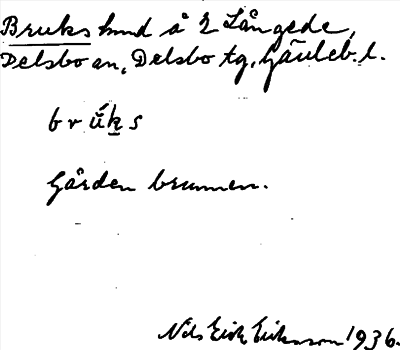 Bruks hund å 2 Långede,
Delsbo an, Delsbo tg, Gävleb. l.
brúks
Gården brunnen.
Nils Erik Eriksson 1936.